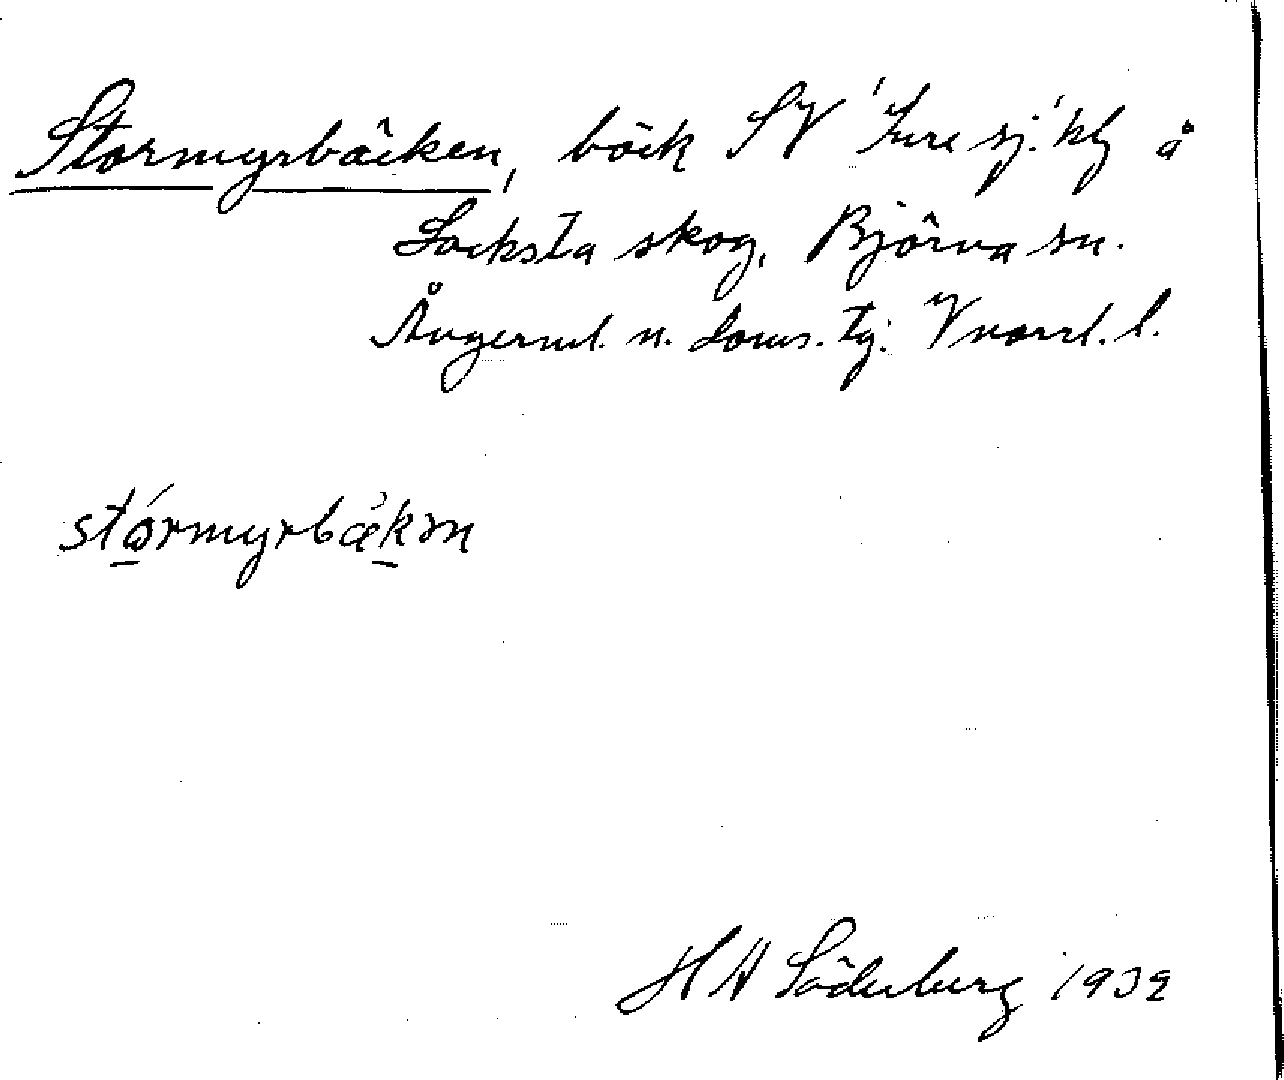 Stormyrbäcken, bäck SV 'Iure sj.' kbg å
Locksta skog, Björna sn.
Ångerml. n. doms. tg. Vnorrl. l.
stórmyrbækən
H A Söderberg 1932